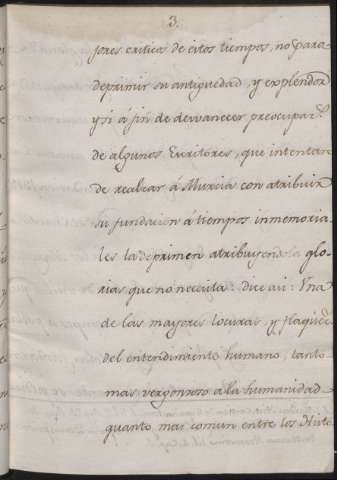 3.
jores critica de estos tiempos, no para
deprimir su antiguedad, y explendor
y si á fin de desvanecer preocupac.s
de algunos Escritores, que intentan
de realzar á Murcia con atribuir
su fundacion á tiempos inmemoria-
les la deprimen atribuyendola glo-
rias que no necesita: dice asi: Una
de las mayores locuras, y flaquezs
del entendimiento humano, tanto
mas vergonzoso a la humanidad
quanto mas comun entre los Histo